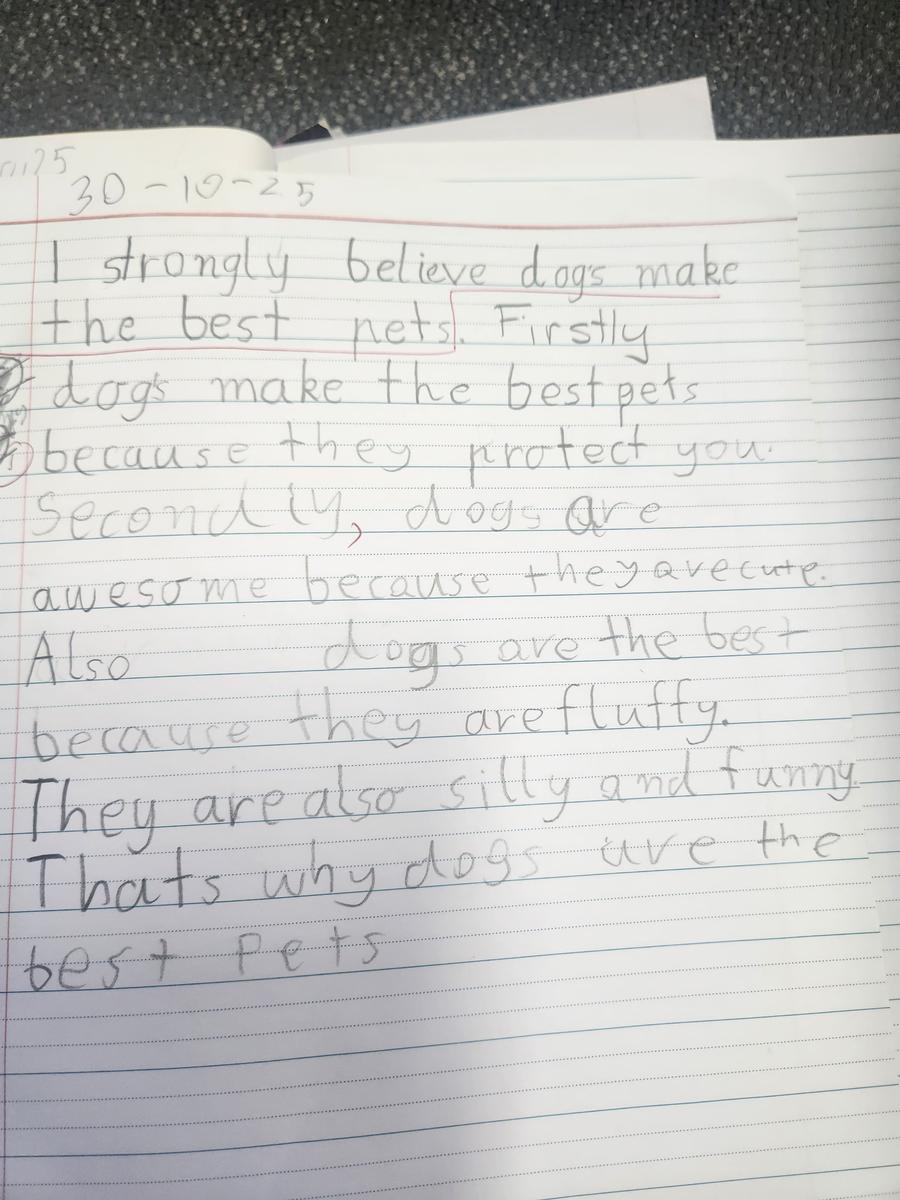 30-10-25
I strongly believe dogs make
the best pets. Firstly
dogs make the best pets
because they protect you.
Secondly, dogs are
awesome because they are cute.
Also dogs are the best
because they are fluffy.
They are also silly and funny.
Thats why dogs are the
best Pets